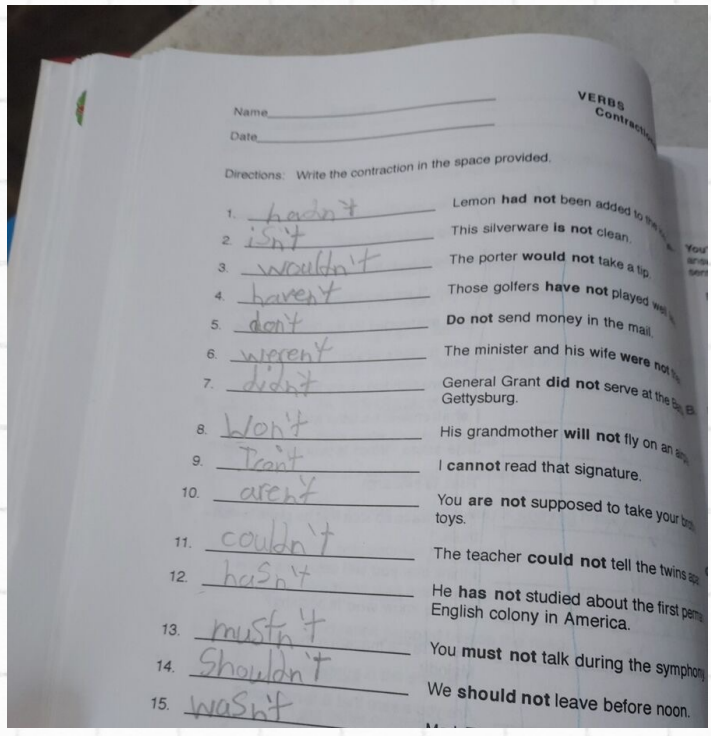 VERBS
Contractions
Name
Date
Directions: Write the contraction in the space provided.
1. hadn't Lemon had not been added to the
2. isn't This silverware is not clean.
3. wouldn't The porter would not take a tip.
4. haven't Those golfers have not played well
5. don't Do not send money in the mail.
6. weren't The minister and his wife were not
7. didn't General Grant did not serve at the
Gettysburg.
8. Won't His grandmother will not fly on an
9. I cannot read that signature.
10. aren't You are not supposed to take your
toys.
11. couldn't The teacher could not tell the twins
12. hasn't He has not studied about the first
English colony in America.
13. mustn't You must not talk during the symphony
14. Shouldn't We should not leave before noon.
15. wasn't
You